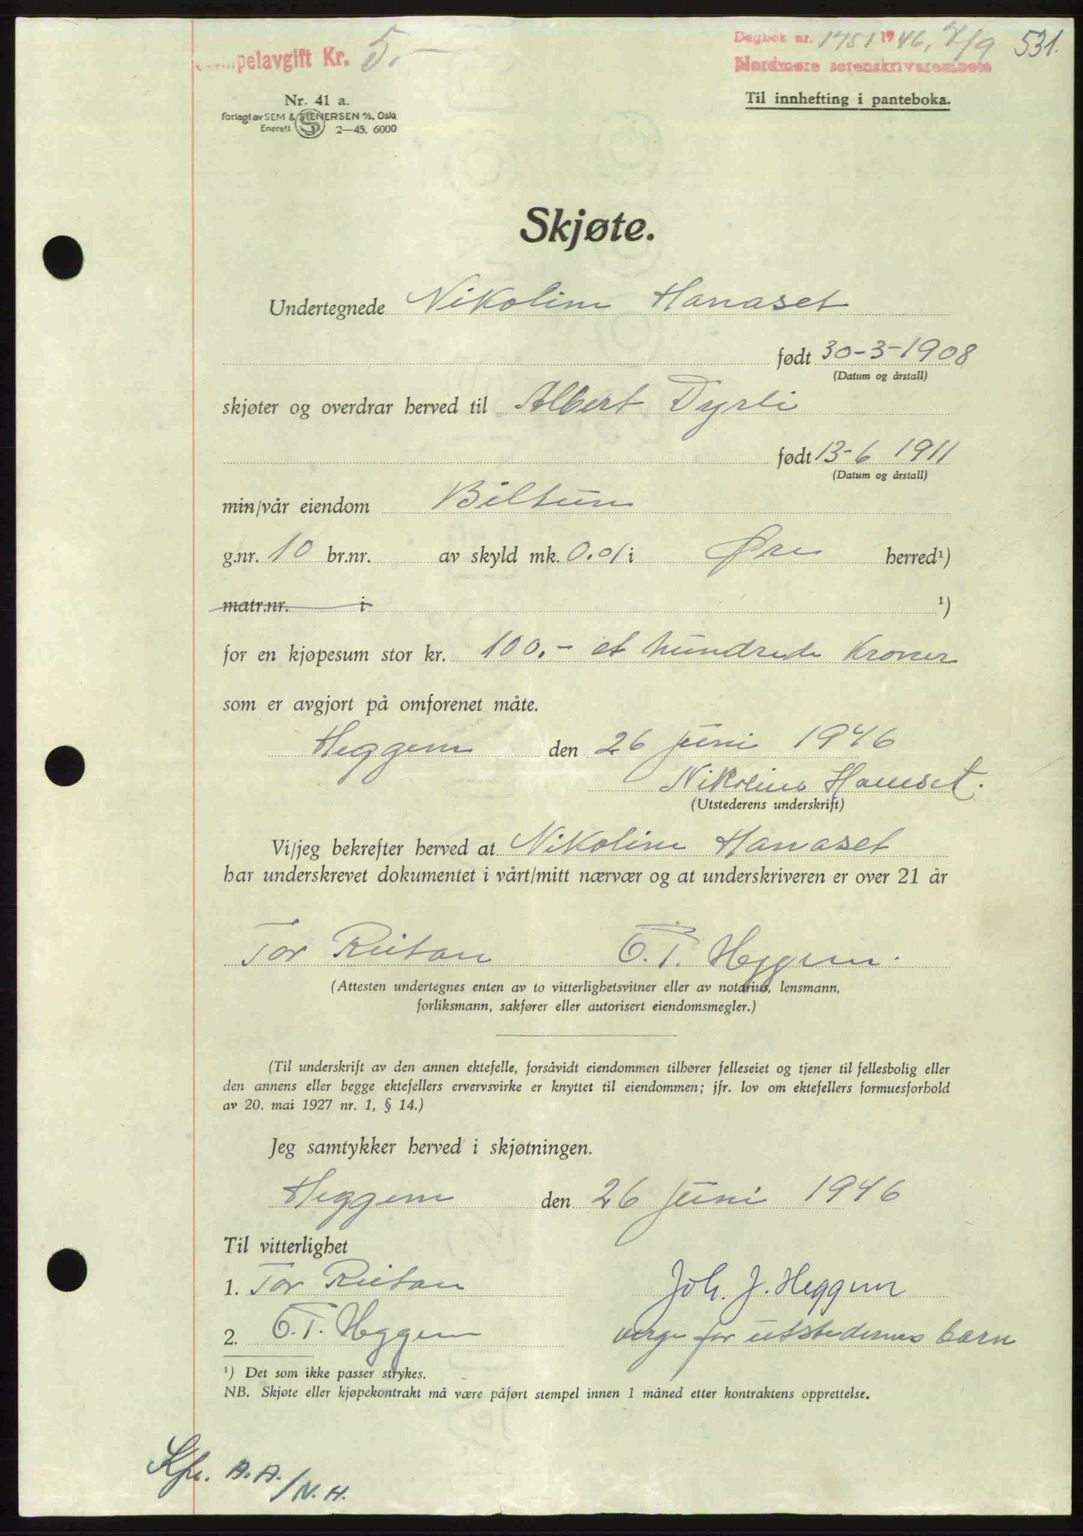 Stempelavgift Kr. 5.-
Dagbok nr. 1751 1946, 7/9
531.
Nordmøre sorenskriverembete
Nr. 41 a.
Forlagt av SEM & STENERSEN A/S, Oslo
Enerett 2—45. 6000
Til innhefting i panteboka.
Skjøte.
Undertegnede Nikoline Hanaset
født 30-3-1908
(Datum og årstall)
skjøter og overdrar herved til Albert Dyrli
født 13-6 1911
(Datum og årstall)
min/vår eiendom Biltun
g.nr. 10 br.nr. av skyld mk. 0.01 i Øre herred¹)
matr.nr. i ¹)
for en kjøpesum stor kr. 100.- et hundrede Kroner
som er avgjort på omforenet måte.
Heggem den 26 juni 1946
Nikoline Hanaset.
(Utstederens underskrift)
Vi/jeg bekrefter herved at Nikoline Hanaset
har underskrevet dokumentet i vårt/mitt nærvær og at underskriveren er over 21 år
Tor Reitan O.T. Heggem.
(Attesten undertegnes enten av to vitterlighetsvitner eller av notarius, lensmann,
forliksmann, sakfører eller autorisert eiendomsmegler.)
(Til underskrift av den annen ektefelle, forsåvidt eiendommen tilhører felleseiet og tjener til fellesbolig eller
den annens eller begge ektefellers ervervsvirke er knyttet til eiendommen; jfr. lov om ektefellers formuesforhold
av 20. mai 1927 nr. 1, § 14.)
Jeg samtykker herved i skjøtningen.
Heggem den 26 juni 1946
Til vitterlighet
1. Tor Reitan Joh. J. Heggem
2. O.T. Heggem verge for utstedernes barn
¹) Det som ikke passer strykes.
NB. Skjøte eller kjøpekontrakt må være påført stempel innen 1 måned etter kontraktens opprettelse.
Kfr. A.A./N.H.